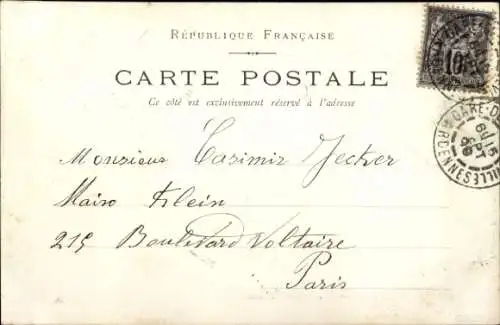 RÉPUBLIQUE FRANÇAISE
CARTE POSTALE
Ce côté est exclusivement réservé à l'adresse
Monsieur Casimir Jecker
Maison Klein
215 Boulevard Voltaire
Paris
10
ARDENNES